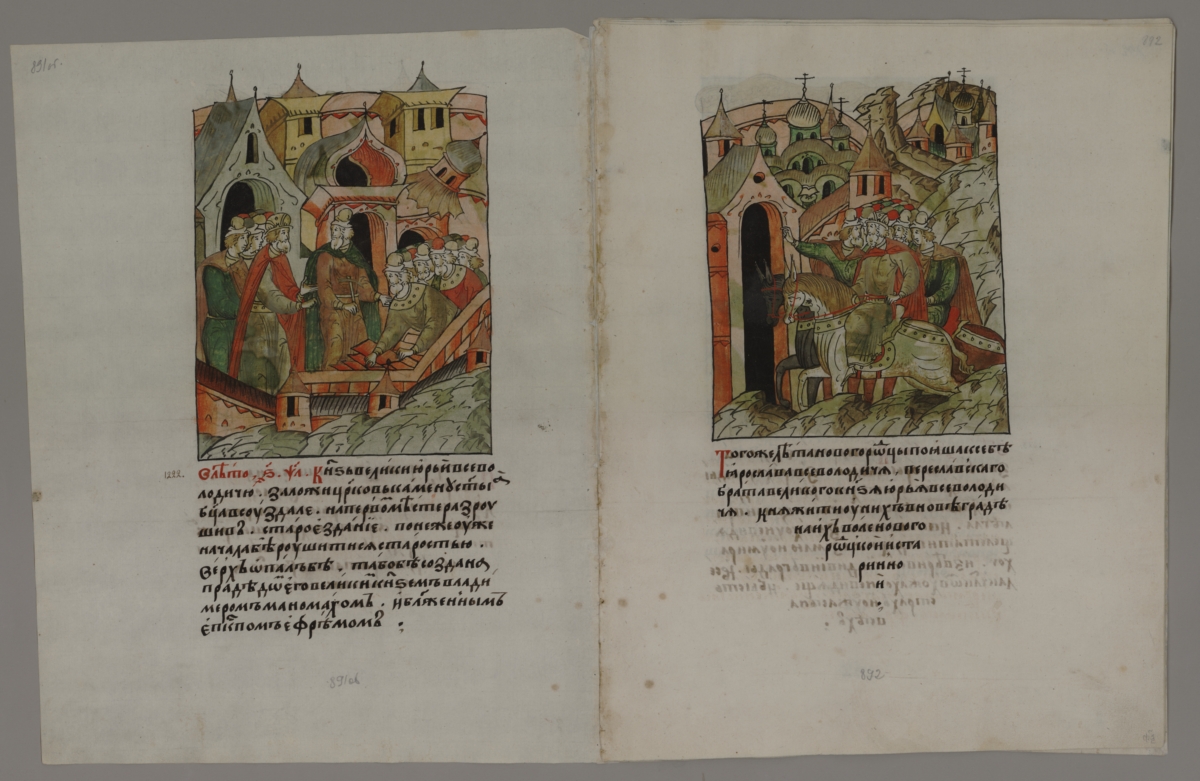 891об.
1222.
В лѣто ҂ѕ҃ ѱ҃л. Кн҃зь велики юрьи всево
лодичю. заложи црк҃овь камену ст҃ыѧ
бц҃а в соуздале. на первомъ мѣсте разроу
шивъ. староезданіе. понеже оуже
начала бѣ роушитисѧ старостью.
верхъ ѿпалъ бѣ. та бо бѣ созданѧ
прадѣдѡ его великимъ кн҃земъ влади
меромъ маномахомъ. и блаженнымъ
еп҃кпомъ ефрѣмомъ :
891об
892
Того же лѣта новогорѡцы поиша к себѣ
ꙗрослава всеволодичѧ. переславскаго
брата великого кн҃зѧ юрьѧ всеволоди
чѧ. кнѧжити оу нихъ в новѣградѣ
на ихъ воле нового
рѡцкои иста
ринно
и
:
892